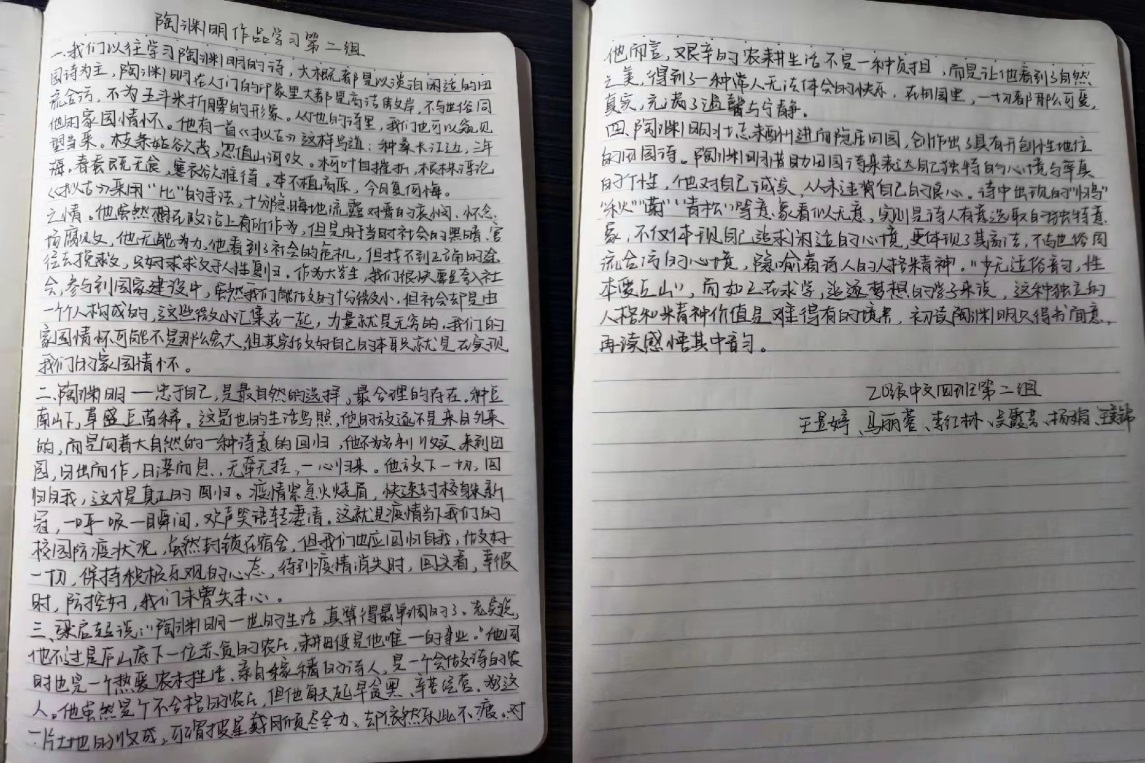 陶渊明作品学习第二组
一.我们以往学习陶渊明的诗,大概都是以淡泊闲适的田
园诗为主,陶渊明在人们的印象里大都是高洁傲岸,不与世俗同
流合污,不为五斗米折腰的形象。从他的诗里,我们也可以窥见
他的家国情怀。他有一首《拟古》这样写道:种桑长江边,三年
望当采。枝条始欲茂,忽值山河改。柯叶自摧折,根株浮沧
海,春蚕既无食,寒衣欲谁待。本不植高原,今日复何悔。
《拟古》采用“比”的手法,十分隐晦地流露对晋的哀悯、怀念
之情。他虽然想在政治上有所作为,但是由于当时社会的黑暗,官
场腐败,他无能为力,他看到了社会的危机,但找不到正确的途
径去挽救,只好求救于人性复归。作为大学生,我们很快要步入社
会,参与到国家建设中,虽然我们能做的十分微小,但社会却是由
一个个人构成的,这些微小汇集在一起,力量就是无穷的,我们的
家国情怀可能不是那么宏大,但其实做好自己的本职就是在实现
我们的家国情怀。
二.陶渊明——忠于自己,是最自然的选择,最合理的存在。种豆
南山下,草盛豆苗稀。这是他的生活写照,他的放逐不是来自外来
的,而是向着大自然的一种诗意的回归,他不为名利收买,来到田
园,日出而作,日落而息,无牵无挂,一心归来。他放下一切,回
归自我,这才是真正的回归。疫情紧急火烧眉,快速封校躲新
冠,一呼一吸一瞬间,欢声笑语轻凄清。这就是疫情当下我们的
校园防疫状况,虽然封锁在宿舍,但我们也应回归自我,做好
一切,保持积极乐观的心态,待到疫情消失时,回头看,幸彼
时,防控好,我们未曾失本心。
三、梁启超说:“陶渊明一世的生活,真算得最单调的了。老实说,
他不过是庐山底下一位赤贫的农民,耕田便是他唯一的事业。”他同
时也是一个热爱农村生活、亲自稼穑的诗人,是一个会做诗的农
人。他虽然是个不合格的农民,但他每天起早贪黑、辛苦经营,为这
一片土地的收成,可谓披星戴月倾尽全力、却依然乐此不疲。对
他而言,艰辛的农耕生活不是一种负担,而是让他看到了自然
之美,得到了一种常人无法体会的快乐,在田园里,一切都那么可爱,
真实,充满了温馨与宁静。
四、陶渊明对
进而隐居田园,创作出了具有开创性地位
的田园诗。陶渊明凭借田园诗来表达自己独特的心境与率真
的个性,他对自己诚实,从未违背自己的良心。诗中出现的“归鸟”
“秋”“菊”“青松”等意象看似无意,实则是诗人有意选取的独特意
象,不仅体现自己追求闲适的心境,更体现了其高洁,不与世俗同
流合污的心境,隐喻着诗人的人格精神。“少无适俗韵,性
本爱丘山”,而如正在求学,追逐梦想的学子来说,这种独立的
人格和精神价值是难得有的境界,初读陶渊明只得书面意,
再读感悟其中韵。
20级中文四班第二组
王昱婷、马丽蓉、李红林、吴霞